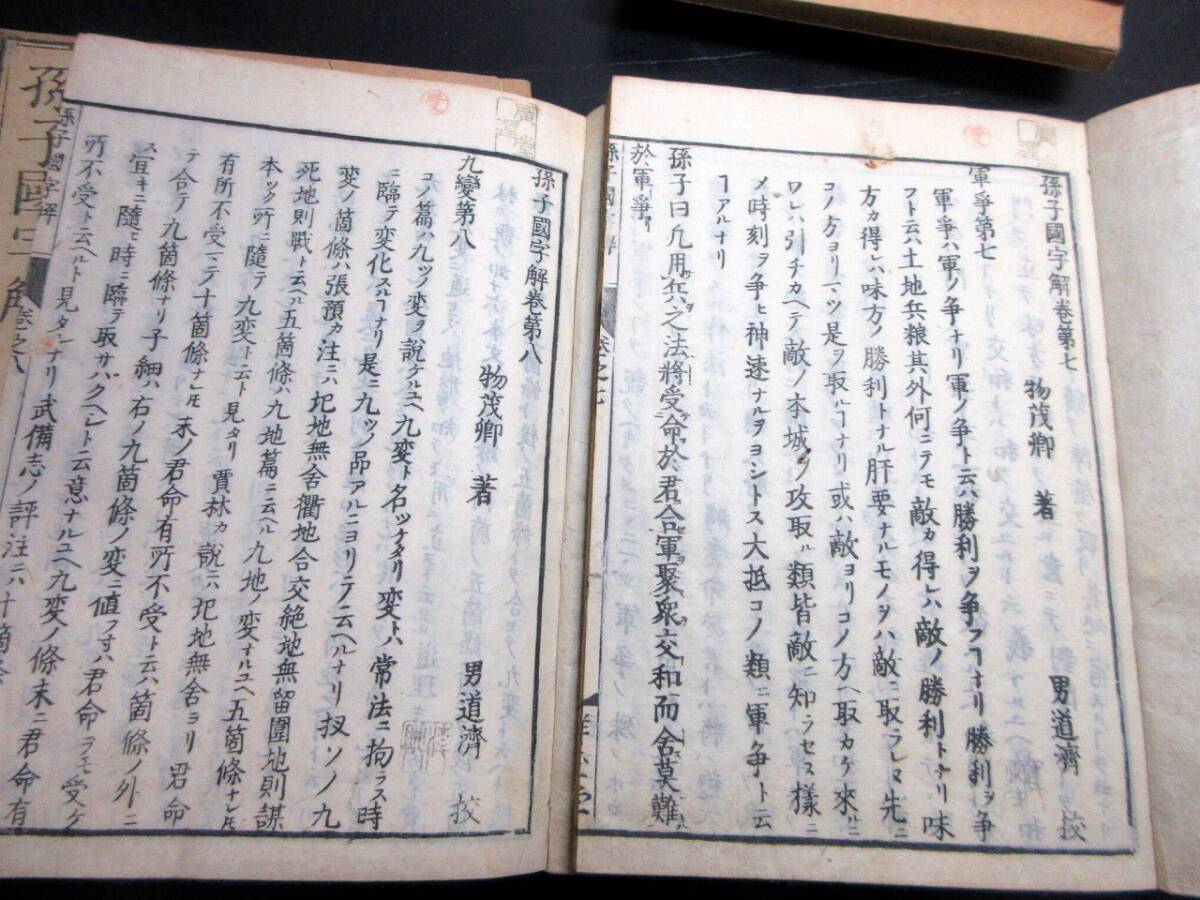 孫子國字解卷第七
物茂卿 著 男道濟 挍
軍爭第七
軍爭ハ軍ノ争ナリ軍ノ争ト云ハ勝利ヲ争フヿナリ勝利ヲ争
フト云ハ土地兵粮其外何ニテモ敵カ得レハ敵ノ勝利トナリ味
方カ得レハ味方ノ勝利トナル肝要ナルモノヲハ敵ニ取ラレヌ先ニ
コノ方ヨリマツ是ヲ取ルヿナリ或ハ敵ヨリコノ方ヘ取カケ來ルニ
ワレハ引チカヘテ敵ノ本城ヲ攻取ル類皆敵ニ知ラセス樣ニ
メ時刻ヲ争ヒ神速ナルヲヨシトス大抵コノ類ニ軍争ト云
ヿアルナリ
孫子曰凡用兵之法將受命於君合軍聚衆交和而舍莫難
於軍爭
孫子國字解
卷之七
孫子國字解卷第八
物茂卿 著 男道濟 挍
九變第八
コノ篇ハ九ツノ変ヲ説ケルユヘ九変ト名ツケタリ変トハ常法ニ拘ラス時
ニ臨テ変化スルヿナリ是ニ九ツノ品アルニヨリテ云ヘルナリ扨ソノ九
変ノ箇條ハ張預カ注ニハ圮地無舍衢地合交絶地無留圍地則謀
死地則戰ト云ヘル五箇條ハ九地篇ニ云ヘル九地ノ変ナルユヘ五箇條ナレ𪜈
本ツク所ニ隨テ九変ト云ト見タリ賈林カ説ニハ圮地無舍ヨリ君命
有所不受マテ十箇條ナレ𪜈末ノ君命有所不受ト云ハ箇條ノ外ニ
テ合テ九箇條ナリ子細ハ右ノ九箇條ノ変ニ値フ寸ハ君命ヲモ受ケ
ス宜キニ隨ヒ時ニ臨テ取サバクヘシト云意ナルユヘ九変ノ條末ニ君命有
所不受ト云ヘルト見タルナリ武備志ノ評注ニハ十箇條
孫子國字解
卷之八